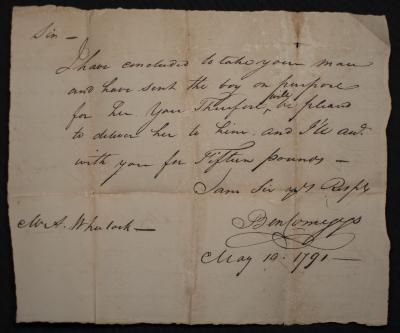 Sir —
I have concluded to take your mare
and have sent the boy on purpose
for her You Therefore, will be pleased
to deliver her to him. and I'll
with you for Fifteen pounds —
I am Sir Respy
Ben Comegys
Mr A. Whelock —
May 10. 1791 —